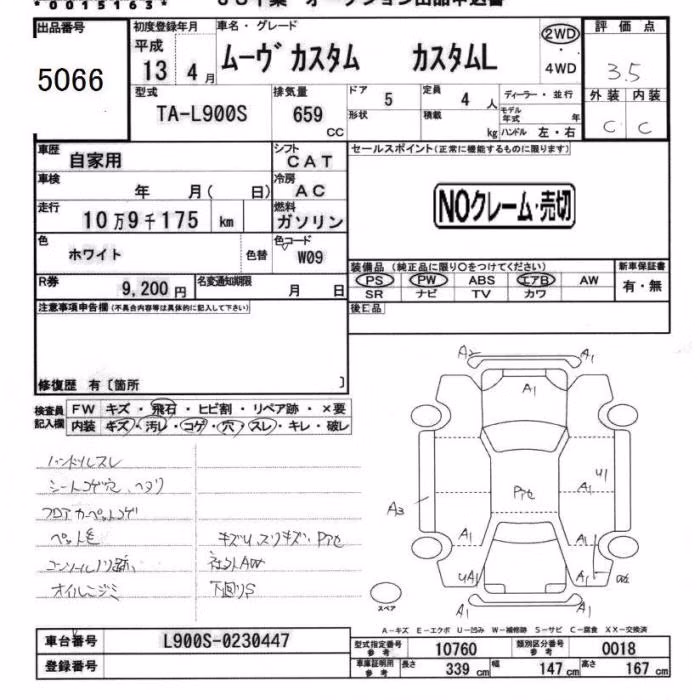 *0015163*
出品番号
5066
初度登録年月
平成
13 年 4 月
車名・グレード
ムーヴ カスタム カスタムL
2WD
4WD
評価点
3.5
外装 内装
C C
型式
TA-L900S
排気量
659
cc
ドア 5
形状
定員 4 人
積載 kg
ディーラー・並行
モデル年式 年
ハンドル 左・右
車歴
自家用
シフト
CAT
セールスポイント(正常に機能するものに限ります)
NOクレーム・売切
車検
年 月( 日)
冷房
AC
走行
10万9千175 km
燃料
ガソリン
色
ホワイト
色替
色コード
W09
装備品 (純正品に限り○をつけてください)
新車保証書
PS PW ABS エアB AW
有・無
SR ナビ TV カワ
R券
9,200 円
名変通知期限
月 日
後日品
注意事項申告欄(不具合内容等は具体的に記入して下さい)
修復歴 有〔箇所 〕
検査員
記入欄
FW キズ・飛石・ヒビ割・リペア跡・×要
内装 キズ・汚レ・コゲ・穴・スレ・キレ・破レ
ハンドルスレ
シートコゲ穴、ヘタリ
フロアカーペットコゲ
ペット毛
キズU、スリキズ、Pアセ
コンソールノリ跡、
社外AW
オイルニジミ
下回りS
A2 A1
A1
A3
Pアセ
A1
U1
A1
A1
A1
UA1
A1
A1 A1
スペア
A-キズ E-エクボ U-凹み W-補修跡 S-サビ C-腐食 XX-交換済
車台番号
L900S-0230447
登録番号
型式指定番号
参考
10760
類別区分番号
参考
0018
車庫証明用
参考
長さ 339 cm
幅 147 cm
高さ 167 cm